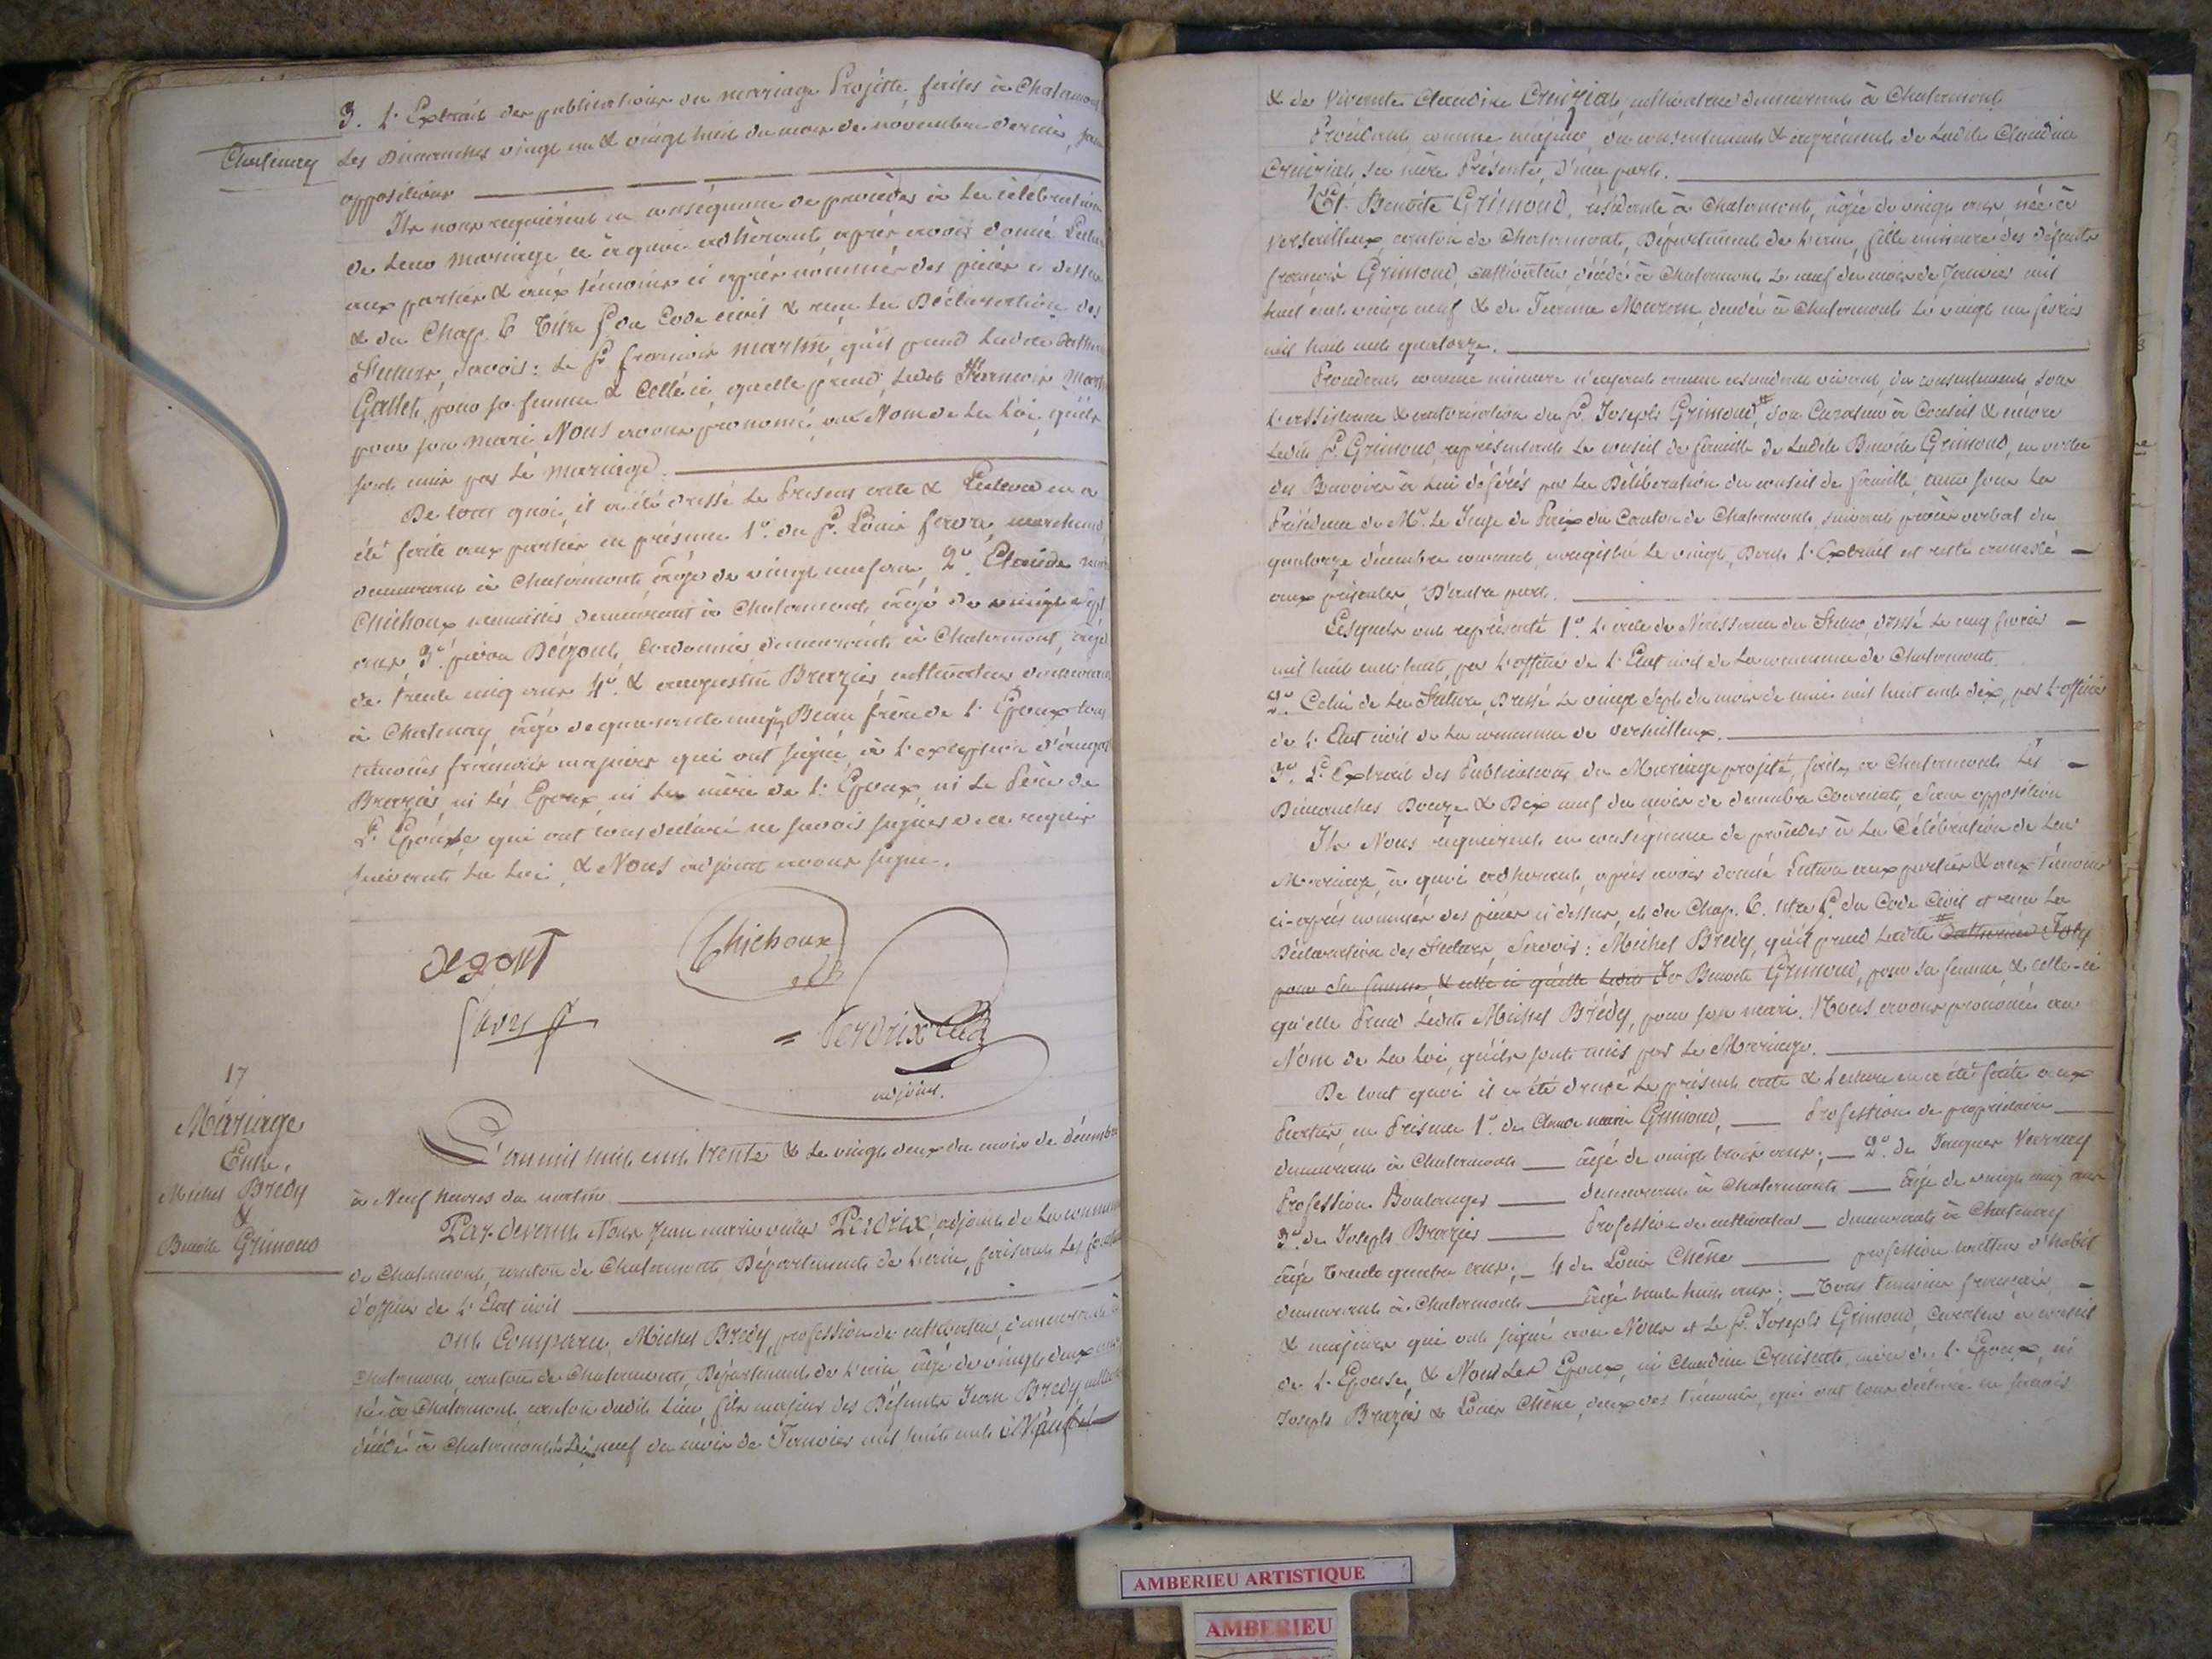 Chatenay
3. L'Extrait des publications du mariage Projetté, faites à Chalamont
Les Dimanches vingt un & vingt huit du mois de novembre dernier, sans
oppositions
Ils nous requiérent en conséquence de procéder à la célébration
de leur mariage ce à quoi adhérant, après avoir donné Lecture
aux parties & aux témoins ci après nommés des pièces ci dessus
& du Chap. 6 Titre 5 du Code civil & reçu la Déclaration des
Futurs, Savoir: le Sr. françois martin, qu'il prend Ladite
Gallet, pour sa femme & Celle ci, quelle prend Ledit françois Martin
pour son mari Nous avons prononcé, au Nom de la Loi, qu'ils
sont unis par le mariage.
De tout quoi, il a été dressé le Présent acte & Lecture en a
été faite aux parties en présence 1o. du Sr. Louis favre, marchand,
demeurant à Chalamont, âgé de vingt neuf ans, 2o. Claude
Chichoux menuisier demeurant à Chalamont, âgé de vingt sept
ans 3o. pierre Dégout, Cordonnier demeurant à Chalamont, âgé
de trente cinq ans 4o. & augustin Brazier cultivateur demeurant
à Chatenay âgé de quarante cinq, Beau frère de l'Epoux tous
témoins français majeurs qui ont signé, à l'exception d'august
Brazier ni les Epoux ni la mère de l'Epoux, ni le Père de
L'Epouse qui ont tous déclaré ne savoir signer de ce requis
suivant la Loi, & Nous adjoint avons signé.
degout
Chichoux
favre
Perdrix
adjoint.
17
Mariage
Entre,
Michel Bredy
&
Benoite Grimoud
L'an mil huit cent trente & le vingt deux du mois de décembre
à Neuf heures du matin
Par-devant Nous Jean marie Perdrix, adjoint de la commune
de Chalamont, canton de Chalamont Département de l'ain, faisant les fonctions
d'officier de l'Etat civil
ont Comparu, Michel Bredy, profession de cultivateur, demeurant à
Chalamont, canton de Chalamont, Département de l'ain, âgé de vingt deux ans,
né à Chalamont, canton dudit Lieu, fils majeur des Défunts Jean Bredy
décédé à Chalamont Le neuf du mois de Janvier mil huit cent
& de Vivante Claudine Cruiziat, cultivatrice demeurant à Chalamont
Procédant comme majeur, du consentement & agrément de Ladite Claudine
Cruiziat sa mère Présente, D'une part.
Et Benoite Grimoud, résidante à Chalamont, âgée de vingt ans, née à
Versailleux, canton de Chalamont, Département de l'ain, fille mineure des défunts
françois Grimoud, cultivateur décédé à Chalamont le neuf du mois de Janvier mil
huit cent vingt neuf & de Mures, décédée à Chalamont Le vingt un février
mil huit cent quatorze.
Procédant comme mineure n'ayant aucun ascendant vivant, du consentement sous
l'assistance & autorisation du Sr. Joseph Grimoud, # son Curateur à Conseil & encore
Ledit Sr. Grimoud, représentant Le conseil de famille de Ladite Benoite Grimoud, en vertu
des Pouvoirs à lui déférés par La Délibération du conseil de famille, sous La
Présidence de Mr. Le Juge de Paix du Canton de Chalamont, suivant procès verbal du
quatorze décembre courant, enregistré Le vingt, Dont L'Extrait est resté annexé
aux présentes, D'autre part.
Lesquels ont représenté 1o. L'acte de Naissance du Futur, dressé Le cinq février
mil huit cent huit, par L'officier de L'Etat civil de La commune de Chalamont.
2o. Celui de La Future, Dressé Le vingt Sept du mois de mai mil huit cent dix, par L'officier
de L'Etat civil de La commune de Versailleux.
3o. L'Extrait des Publications du Mariage projeté, faites à Chalamont Les
Dimanches Douze & Dix neuf du mois de décembre Courant, Sans opposition
Ils Nous requièrent en conséquence de procéder à La Célébration de Leur
Mariage, à quoi adhérant, après avoir donné Lecture aux parties & aux témoins
ci-après nommés des pièces ci dessus, et du Chap. 6. titre 5. du Code Civil et reçu La
Déclaration des Futurs, Savoir: Michel Bredy, qu'il prend Ladite # Catherine Joly
pour Sa femme & celle ci qu'elle Ledit Jo Benoite Grimoud, pour Sa femme & celle-ci
qu'elle Prend Ledit Michel Brédy, pour son mari. Nous avons prononcé au
Nom de La Loi, qu'ils sont unis par Le Mariage.
De tout quoi il a été dressé Le présent acte & Lecture en a été faite aux
Parties en Présence 1o. de Claude marie Grimoud, Profession de propriétaire
demeurant à Chalamont âgé de vingt trois ans; 2o. de Jacques Varray
Profession Boulanger demeurant à Chalamont âgé de vingt cinq ans
3o. de Joseph Brazier Profession de cultivateur demeurant à Chatenay
âgé trente quatre ans; 4 de Louis Chêne profession tailleur d'habit
demeurant à Chalamont âgé trente huit ans; Tous témoins français
& majeurs qui ont signé avec Nous et Le Sr. Joseph Grimoud, Curateur à conseil
de L'Epouse, & Non Les Epoux, ni Claudine Cruisiat, mère de L'Epoux, ni
Joseph Brazier & Louis Chêne, deux des témoins, qui ont tous déclaré ne savoir
AMBERIEU ARTISTIQUE
AMBERIEU